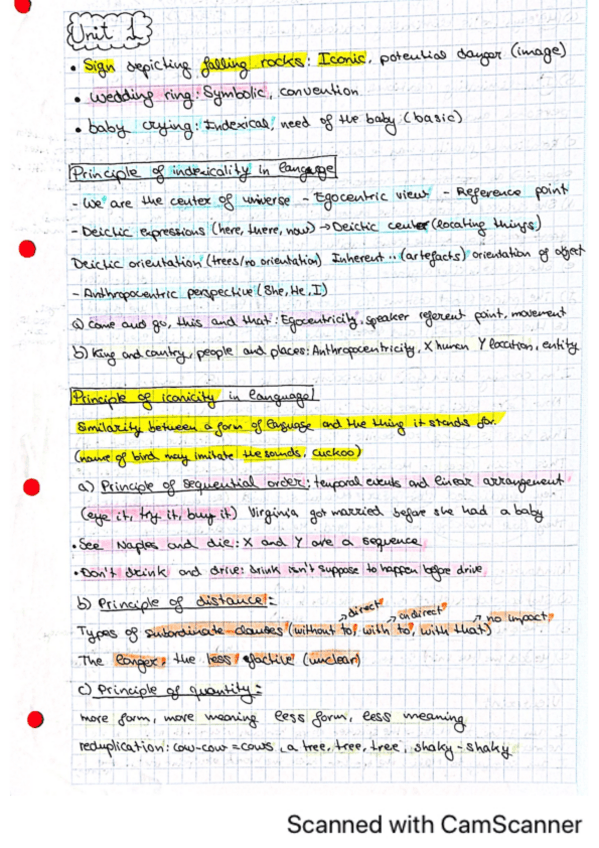 Unit 1
• Sign depicting falling rocks: Iconic, potential danger (image)
• Wedding ring: Symbolic, convention
• baby crying: Indexical, need of the baby (basic)
Principle of indexicality in language
- We are the center of universe - Egocentric view - Reference point
- Deictic expressions (here, there, now) → Deictic center (locating things)
Deictic orientation (trees/no orientation) Inherent .. (artefacts) orientation of object
- Anthropocentric perspective (She, He, I)
a) Come and go, this and that: Egocentricity, speaker referent point, movement
b) King and country, people and places: Anthropocentricity, X human Y location, entity
Principle of iconicity in language
Similarity between a form of language and the thing it stands for.
(name of bird may imitate the sounds, cuckoo)
a) Principle of sequential order: temporal events and linear arrangement
(eye it, try it, buy it) Virginia got married before she had a baby
• See Naples and die: X and Y are a sequence
• Don't drink and drive: drink isn't suppose to happen before drive
b) Principle of distance:
→ direct → indirect → no impact
Types of subordinate clauses (without to, with to, with that)
The longer, the less (unclear)
c) Principle of quantity:
more form, more meaning less form, less meaning
reduplication: cow-cow = cows, a tree, tree, tree, shaky-shaky
Scanned with CamScanner